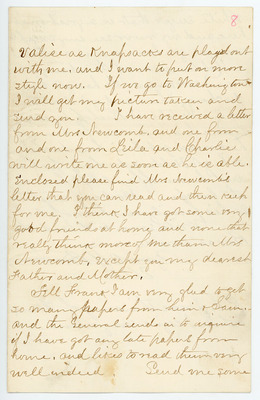 8
Valise as Knapsacks are played out
with me, and I want to put on more
style now. If we go to Washington
I shall get my picture taken and
send you. I have received a letter
from Mrs Newcomb, and one from
and one from Leila and Charlie
will write me as soon as he is able.
Enclosed please find Mrs Newcomb's
letter that you can read and then keep
for me. I think I have got some very
good friends at home, and none that
really think more of me than Mrs
Newcomb, except you my dearest
Father and Mother.
Tell Frank I am very glad to get
so many papers from him & Sam.
and the General sends in to inquire
if I have got any late papers from
home, and likes to read them very
well indeed Send me some